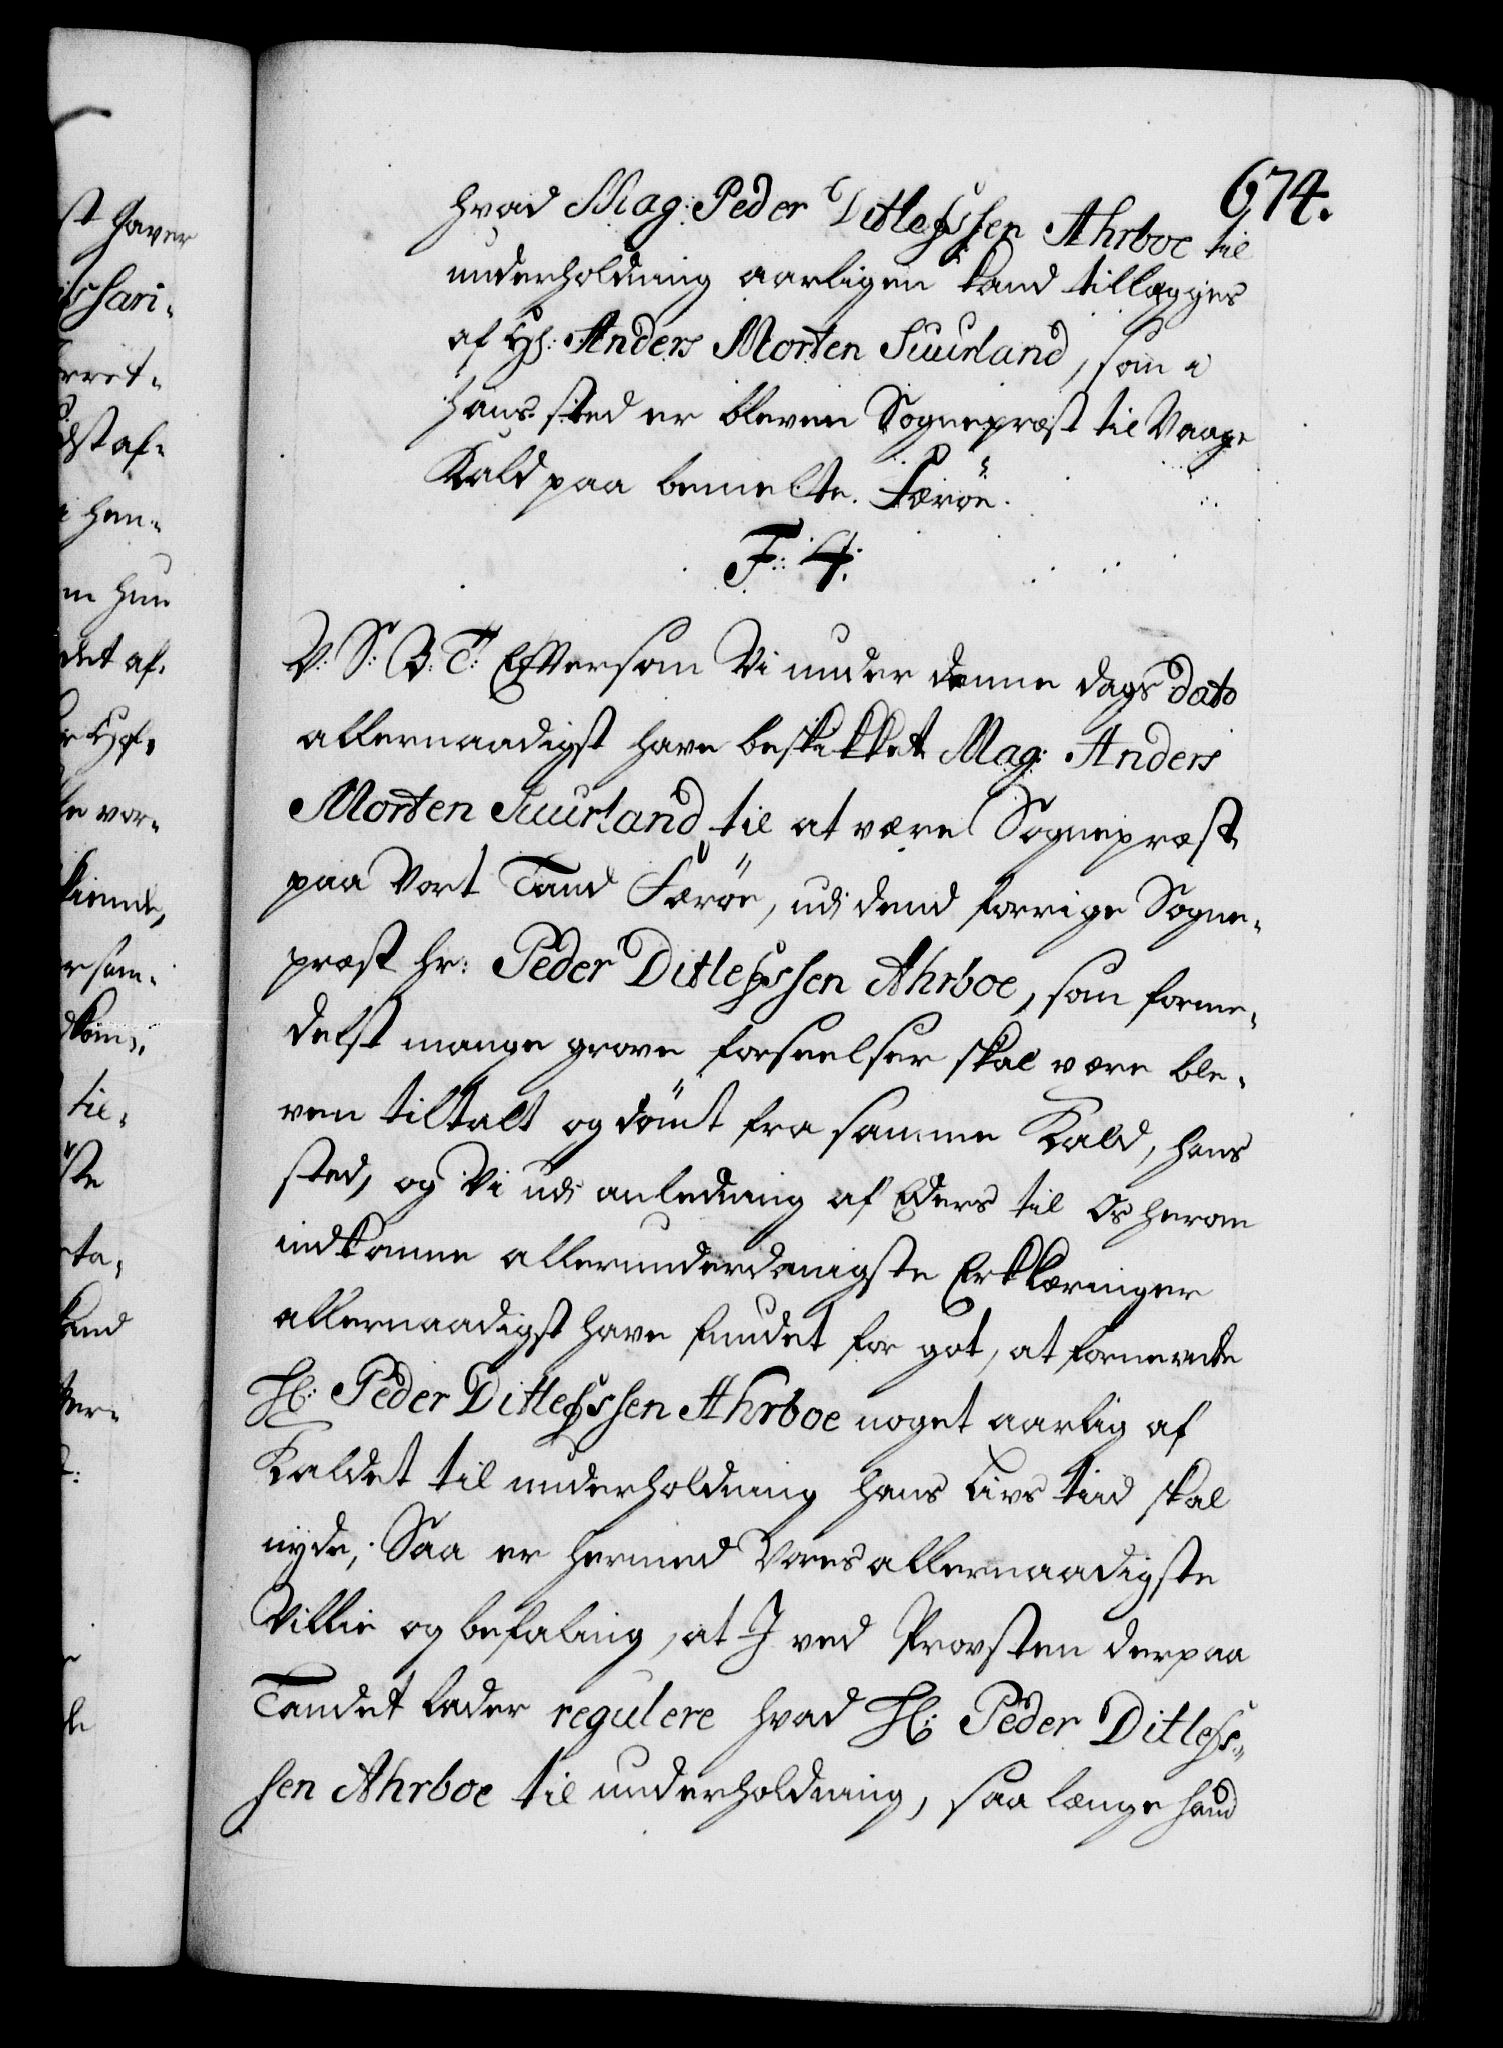 674.
hvad Mag: Peder Ditlefssen Ahrboe til
underholdning aarligen kand tillægges
af Hr: Anders Morten Suurland, som i
hans sted er bleven Sognepræst til Vaage
Kald paa bemelte Færöe.
F: 4:
V: S: B: T: Eftersom Vi under denne dags dato
allernaadigst have beskikket Mag: Anders
Morten Suurland, til at være Sognepræst
paa Vort Land Færöe, udi dend forrige Sogne-
præst hr: Peder Ditlefssen Ahrboe, som forme-
delst mange grove forseelser skal være ble-
ven tiltalt og dömt fra samme Kald, hans
sted, og Vi udi anledning af Eders til Os herom
indkomne allerunderdanigste Erklæringer
allernaadigst have fundet for got, at fornevnte
Hr: Peder Ditlefssen Ahrboe noget aarlig af
Kaldet til underholdning hans Livs tiid skal
nyde; Saa er hermed Vores allernaadigste
Villie og befaling, at I ved Provsten derpaa
Landet lader regulere hvad Hr: Peder Ditlefs-
sen Ahrboe til underholdning, saa længe hand